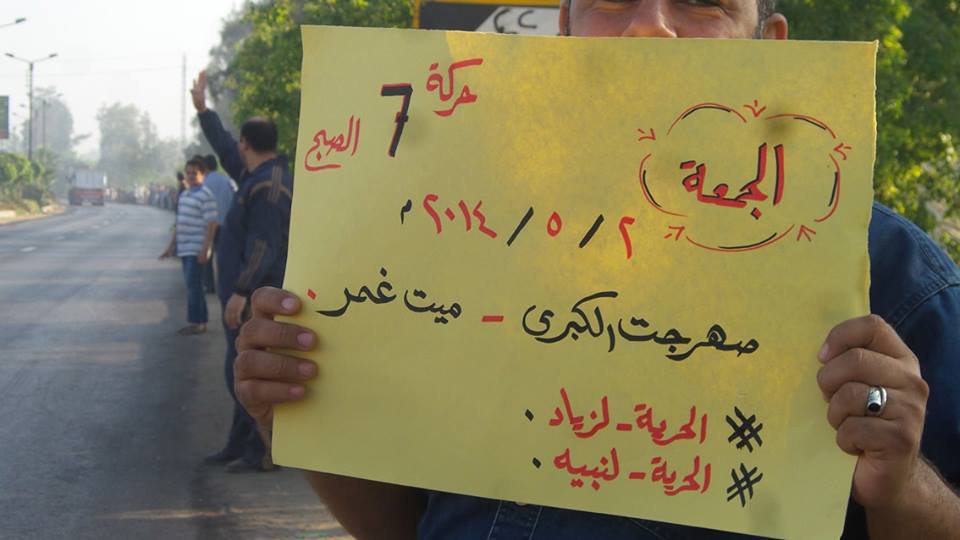 حركة 7 الصبح
الجمعة
٢ / ٥ / ٢٠١٤ م
صهرجت الكبرى - ميت غمر.
# الحرية - لزياد.
# الحرية - لنبيه.